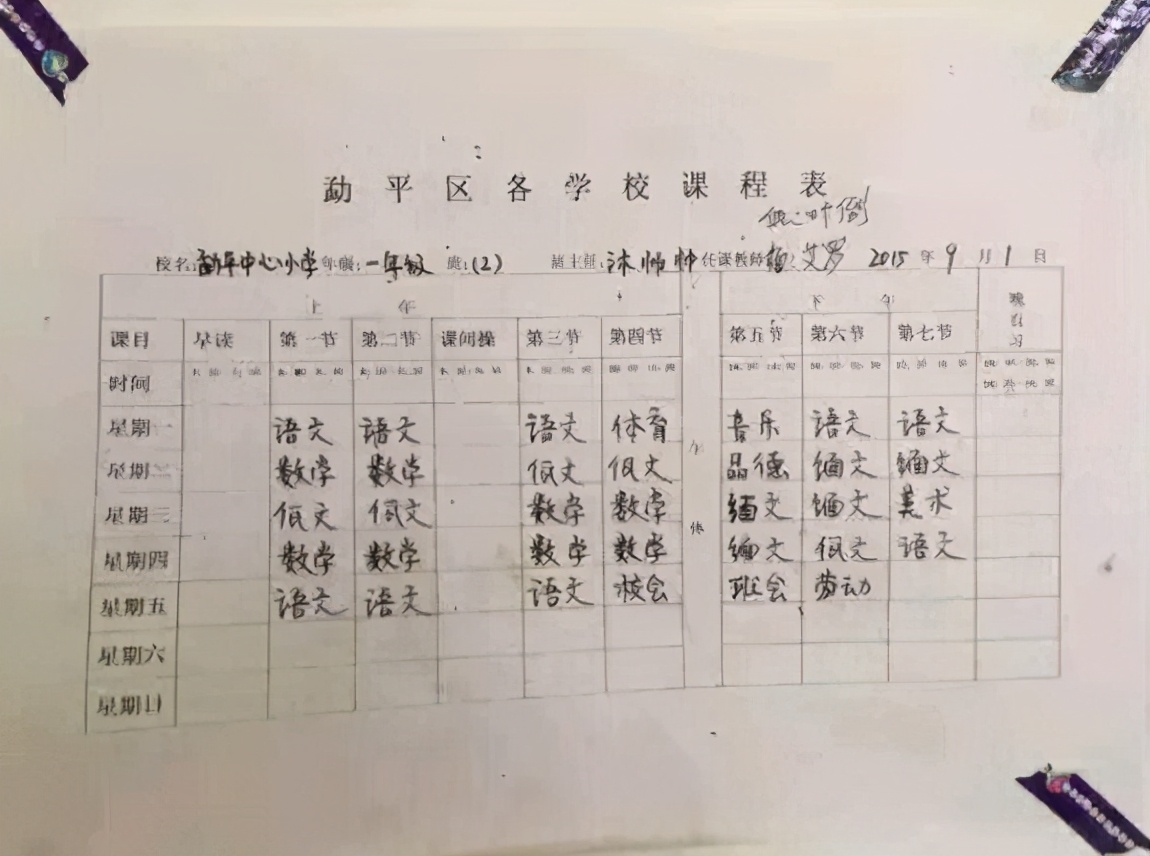 勐平区各学校课程表
校名:勐平中心小学 年级:一年级 班:(2) 班主任: 任课教师: 艾罗 2015年9月1日
上午 下午 晚自习
课目 早读 第一节 第二节 课间操 第三节 第四节 第五节 第六节 第七节
时间
星期一 语文 语文 语文 体育 音乐 语文 语文
星期二 数学 数学 佤文 佤文 品德 缅文 缅文
星期三 佤文 佤文 数学 数学 缅文 缅文 美术
星期四 数学 数学 数学 数学 缅文 佤文 语文
星期五 语文 语文 语文 校会 班会 劳动
星期六
星期日